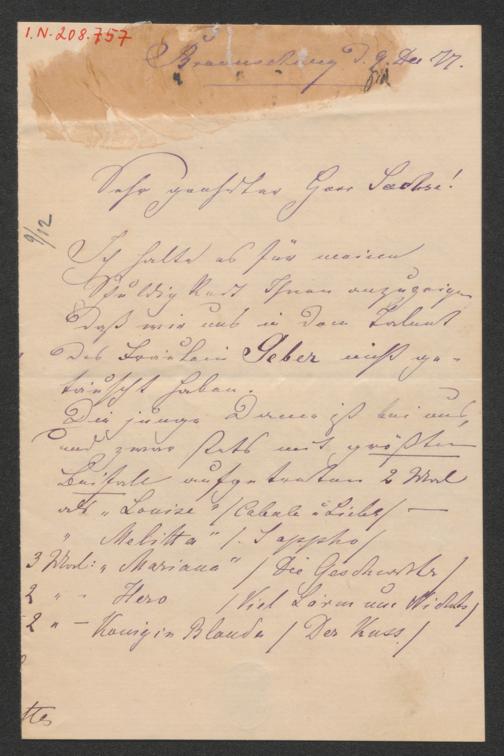 I.N. 208.757
Braunschweig d. 9. Dec 77.
9/12
Sehr geehrter Herr Sachse!
Ich halte es für meine
Schuldigkeit Ihnen anzuzeigen
daß wir uns in dem Talent
des Fräulein Geber nicht ge-
täuscht haben.
Die junge Dame ist bei uns,
und zwar stets mit größtem
Beifall aufgetreten 2 Mal
als „Louise" / Cabale u Liebe / —
„ Melitta" /. Sappho /
3 Mal: „Mariana" / Die Geschwister /
2 " - Hero / Viel Lärm um Nichts /
2 " — Königin Blanda / Der Kuss. /